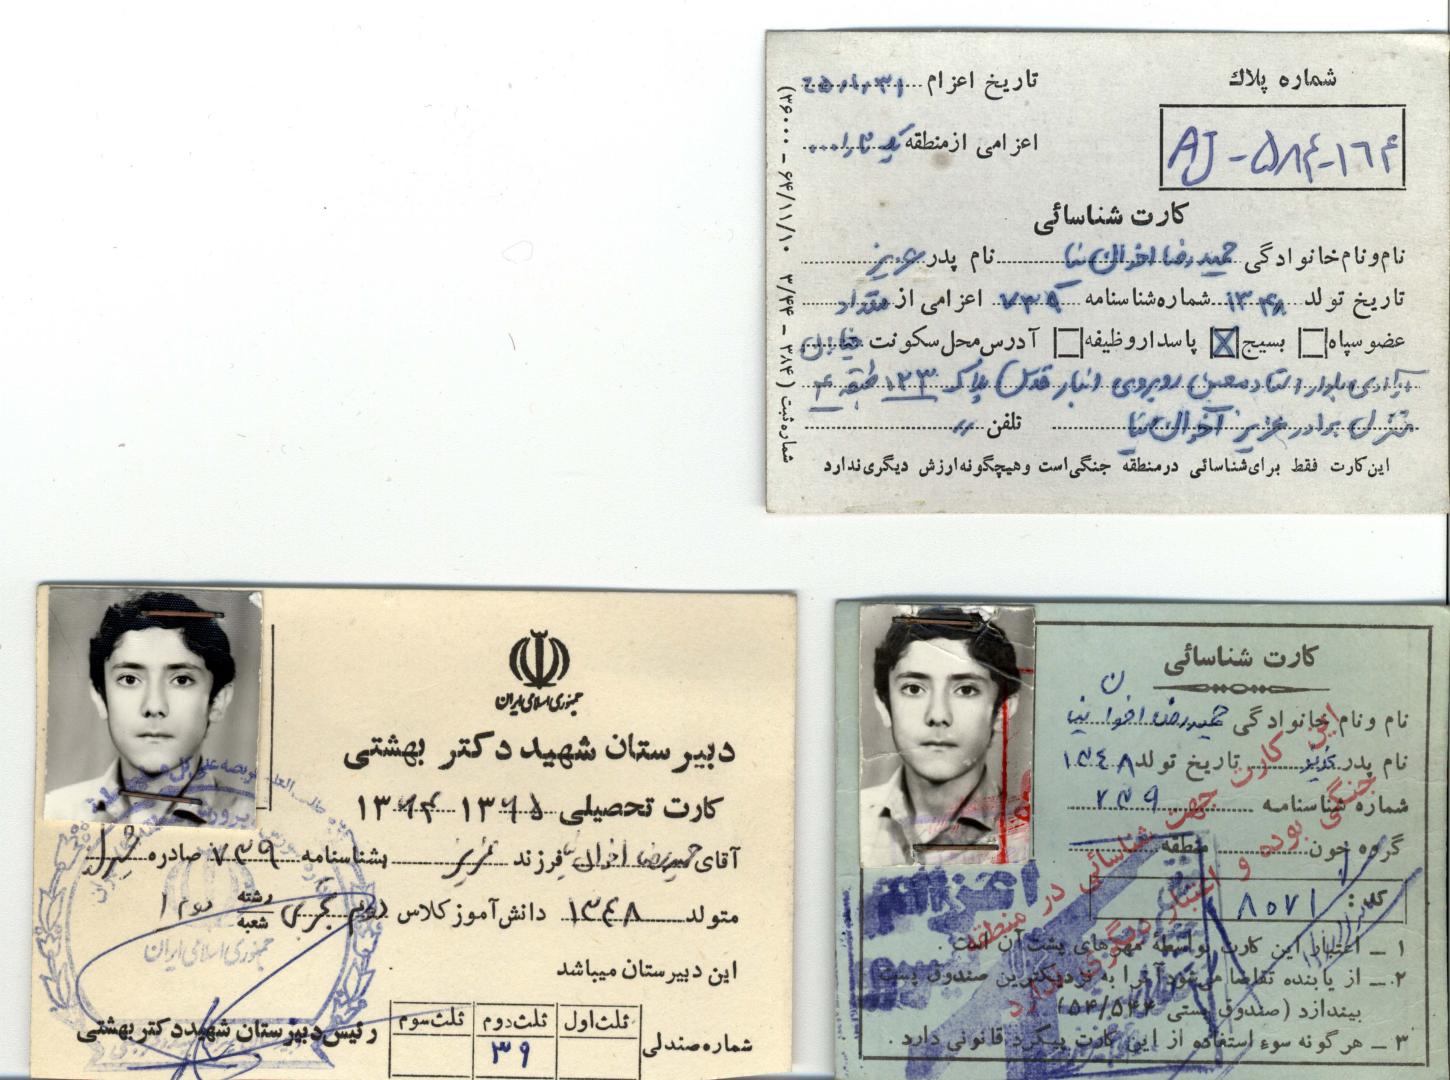 شماره پلاك
تاریخ اعزام
AJ - ۵۸۴-۱۶۴
اعزامی از منطقه
کارت شناسائی
نام و نام خانوادگی حمیدرضا اخوان نیا نام پدر عزیز
تاریخ تولد ۱۳۴۸ شماره شناسنامه ۷۳۹ اعزامی از مقداد
عضو سپاه بسیج پاسدار وظیفه آدرس محل سکونت خیابان
آزادی بلوار استاد معین روبروی انبار قدس پلاک ۱۲۳ طبقه ۴
منزل برادر عزیز اخوان نیا تلفن
این کارت فقط برای شناسائی در منطقه جنگی است و هیچگونه ارزش دیگری ندارد
شماره ثبت (۳۸۴ - ۳/۴۴ ۶۴/۱۱/۱۰ - ۳۶۰۰۰)
جمهوری اسلامی ایران
دبیرستان شهید دکتر بهشتی
کارت تحصیلی ۱۳۶۵ ۱۳۶۴
آقای حمیدرضا اخوان نیا فرزند عزیز بشناسنامه ۷۳۹ صادره
متولد ۱۳۴۸ دانش‌آموز کلاس دوم تجربی رشته شعبه دوم ۱
این دبیرستان میباشد
رئیس دبیرستان شهید دکتر بهشتی
ثلث اول ثلث دوم ثلث سوم
شماره صندلی ۳۹
جمهوری اسلامی ایران
کارت شناسائی
نام و نام خانوادگی حمیدرضا اخوان نیا
نام پدر عزیز تاریخ تولد ۱۳۴۸
شماره شناسنامه ۷۳۹
گروه خون منطقه
کد : ۸۵۷۱
۱ ــ اعتبار این کارت بواسطهٔ مهرهای پشت آن است .
۲ ــ از یابنده تقاضا میشود آنرا به نزدیکترین صندوق پست
بیندازد (صندوق پستی ۵۴/۵۴۴)
۳ ــ هر گونه سوء استفاده از این کارت پیگرد قانونی دارد .
این کارت جهت شناسائی در منطقه
جنگی بوده و اعتبار دیگری ندارد
اعزام